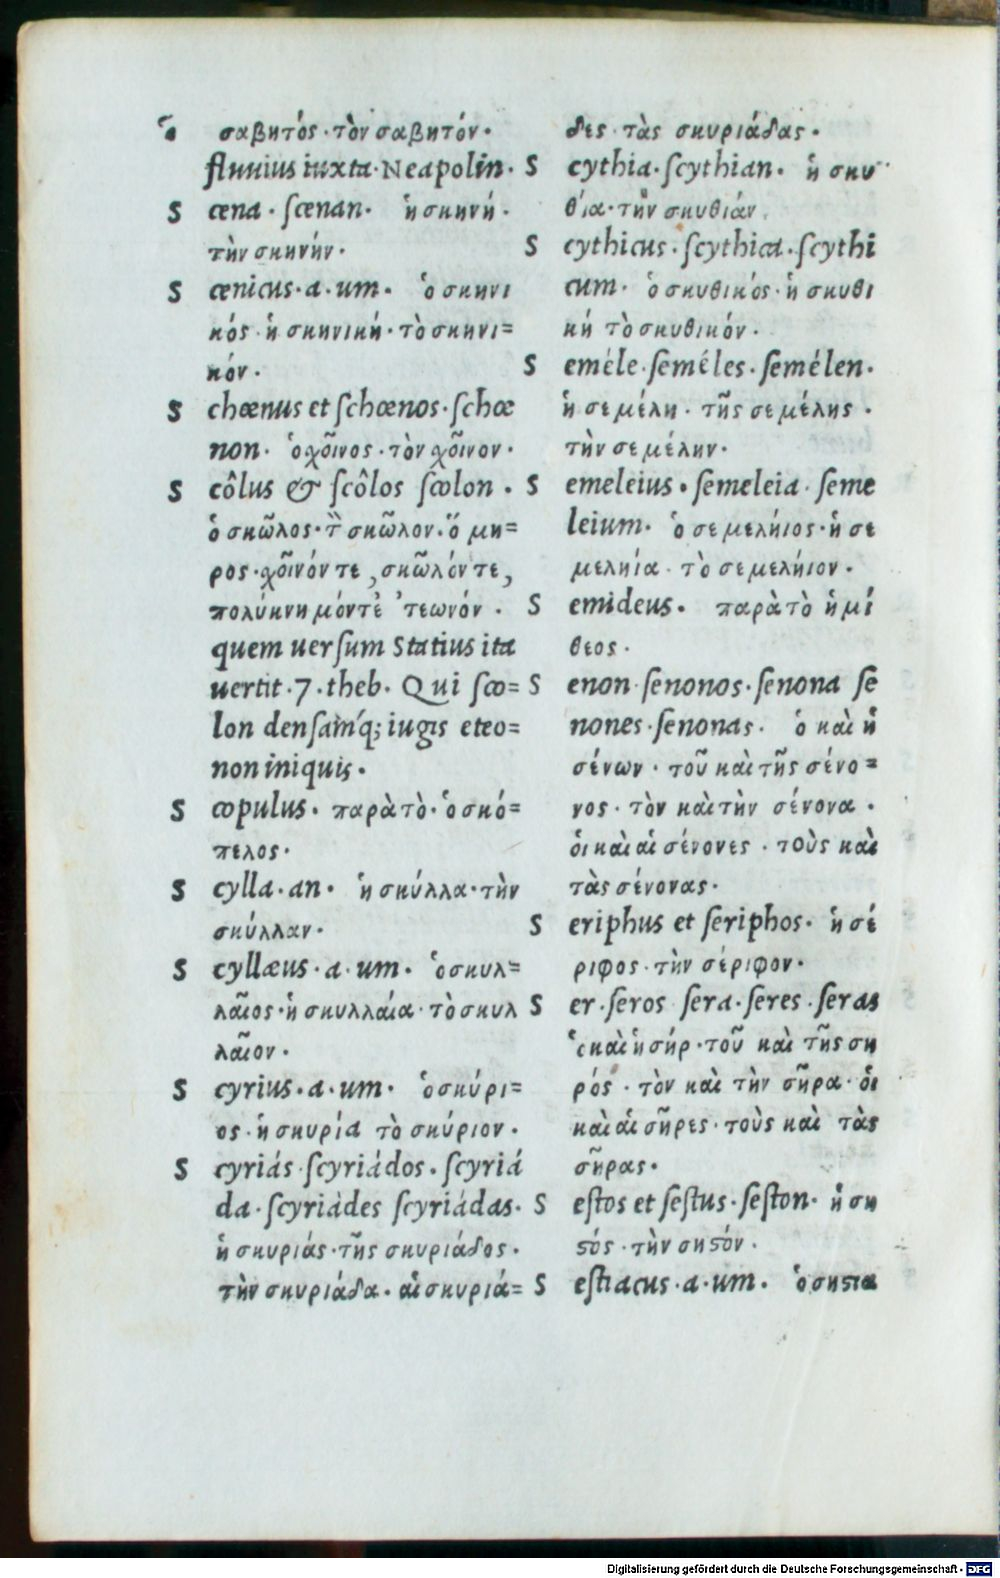 σαβητός·τὸν σαβητόν·
fluuius iuxta·Neapolin·
S cena·ſcenan· ἡ σκηνή·
τὴν σκηνήν·
S cenicus·a·um· ὁ σκηνι
κός·ἡ σκηνική·τὸ σκηνι=
κόν·
S chœnus et ſchœnos·ſchœ
non· ὁ χοῖνος·τὸν χοῖνον·
S côlus & ſcôlos ſcolon·
ὁ σκῶλος·τ̀ σκῶλον·ὅ μη=
ρος·χοῖνόν τε, σκῶλόν τε,
πολύκνημόντε ̓τεωνόν·
quem uerſum Statius ita
uertit·7·theb·Qui ſco=
lon denſamq́; iugis eteo=
non iniquis·
S copulus· παρὰ τὸ· ὁ σκό=
πελος·
S cylla·an· ἡ σκύλλα·τὴν
σκύλλαν·
S cyllæus·a·um· ὁ σκυλ=
λαῖος·ἡ σκυλλαία·τὸ σκυλ
λαῖον·
S cyrius·a·um· ὁ σκύρι=
ος·ἡ σκυρία τὸ σκύριον·
S cyriás·ſcyriádos·ſcyriá
da·ſcyriádes ſcyriádas·
ἡ σκυριάς·τῆς σκυριάδος·
τὴν σκυριάδα·αἱ σκυριά=
δες τὰς σκυριάδας·
S cythia·ſcythian· ἡ σκυ
θία·τὴν σκυθιάν.
S cythicus·ſcythica·ſcythi
cum· ὁ σκυθικός·ἡ σκυθι
κή τὸ σκυθικόν·
S eméle·ſeméles·ſemélen·
ἡ σεμέλη·τῆς σεμέλης·
τὴν σεμέλην·
S emeleius·ſemeleia·ſeme
leium· ὁ σεμελήιος·ἡ σε
μεληία·τὸ σεμελήιον·
S emideus· παρὰ τὸ ἡμί
θεος·
S enon·ſenonos·ſenona ſe
nones·ſenonas· ὁ καὶ ἡ
σένων·τοῦ καὶ τῆς σένο=
νος·τὸν καὶ τὴν σένονα·
ὁι καὶ αἱ σένονες·τοὺς καὶ
τὰς σένονας·
S eriphus et ſeriphos· ἡ σέ
ριφος·τὴν σέριφον·
S er·ſeros ſera·ſeres·ſeras
ὁ καὶ ἡ σήρ·τοῦ καὶ τῆς ση
ρός·τὸν καὶ τὴν σῆρα·ὁι
καὶ αἱ σῆρες·τοὺς καὶ τὰς
σῆρας·
S eſtos et ſeſtus·ſeſton· ἡ ση
ϛός·τὴν σηϛόν·
S eſtiacus·a·um· ὁ σηϛια
Digitalisierung gefördert durch die Deutsche Forschungsgemeinschaft · DFG